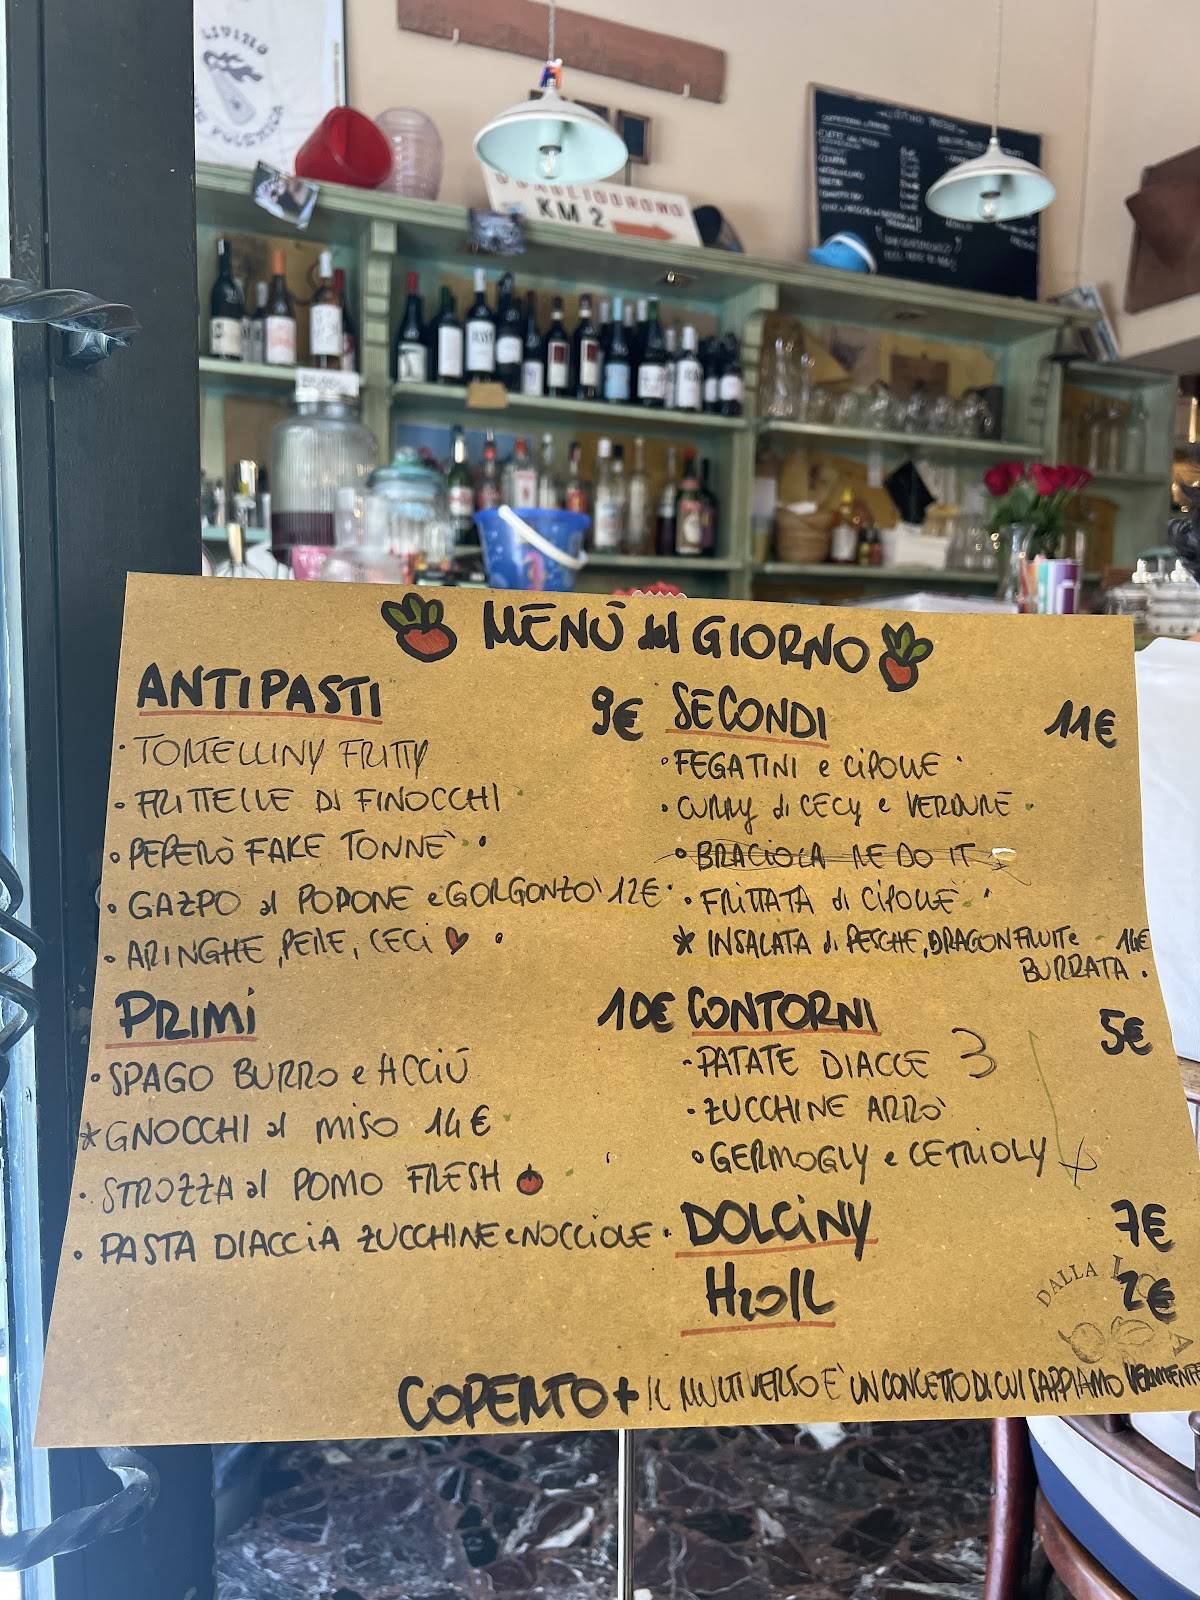 LIVING
KM 2
MENÙ del GIORNO
ANTIPASTI 9€
• TORTELLINY FRITTY
• FRITTELLE DI FINOCCHI
• PEPERÒ FAKE TONNE' •
• GAZPO al POPONE e GORGONZO' 12€ •
• ARINGHE, PERE, CECI •
PRIMI 10€
• SPAGO BURRO e ACCIÙ
* GNOCCHI al MISO 14€
• STROZZA al POMO FRESH
• PASTA DIACCIA ZUCCHINE e NOCCIOLE •
SECONDI 11€
• FEGATINI e CIPOLLE •
• CURRY di CECY e VERDURE •
• BRACIOLA RE DO IT
• FRITTATA di CIPOLLE •
* INSALATA di PESCHE, DRAGONFRUIT e 14€
BURRATA •
CONTORNI 5€
• PATATE DIACCE 3
• ZUCCHINE ARRO'
• GERMOGLY e CETRIOLY
DOLCINY 7€
H2O 1L 2€
DALLA
COPERTO + IL MULTIVERSO E' UN CONCETTO DI CUI SAPPIAMO VERAMENTE